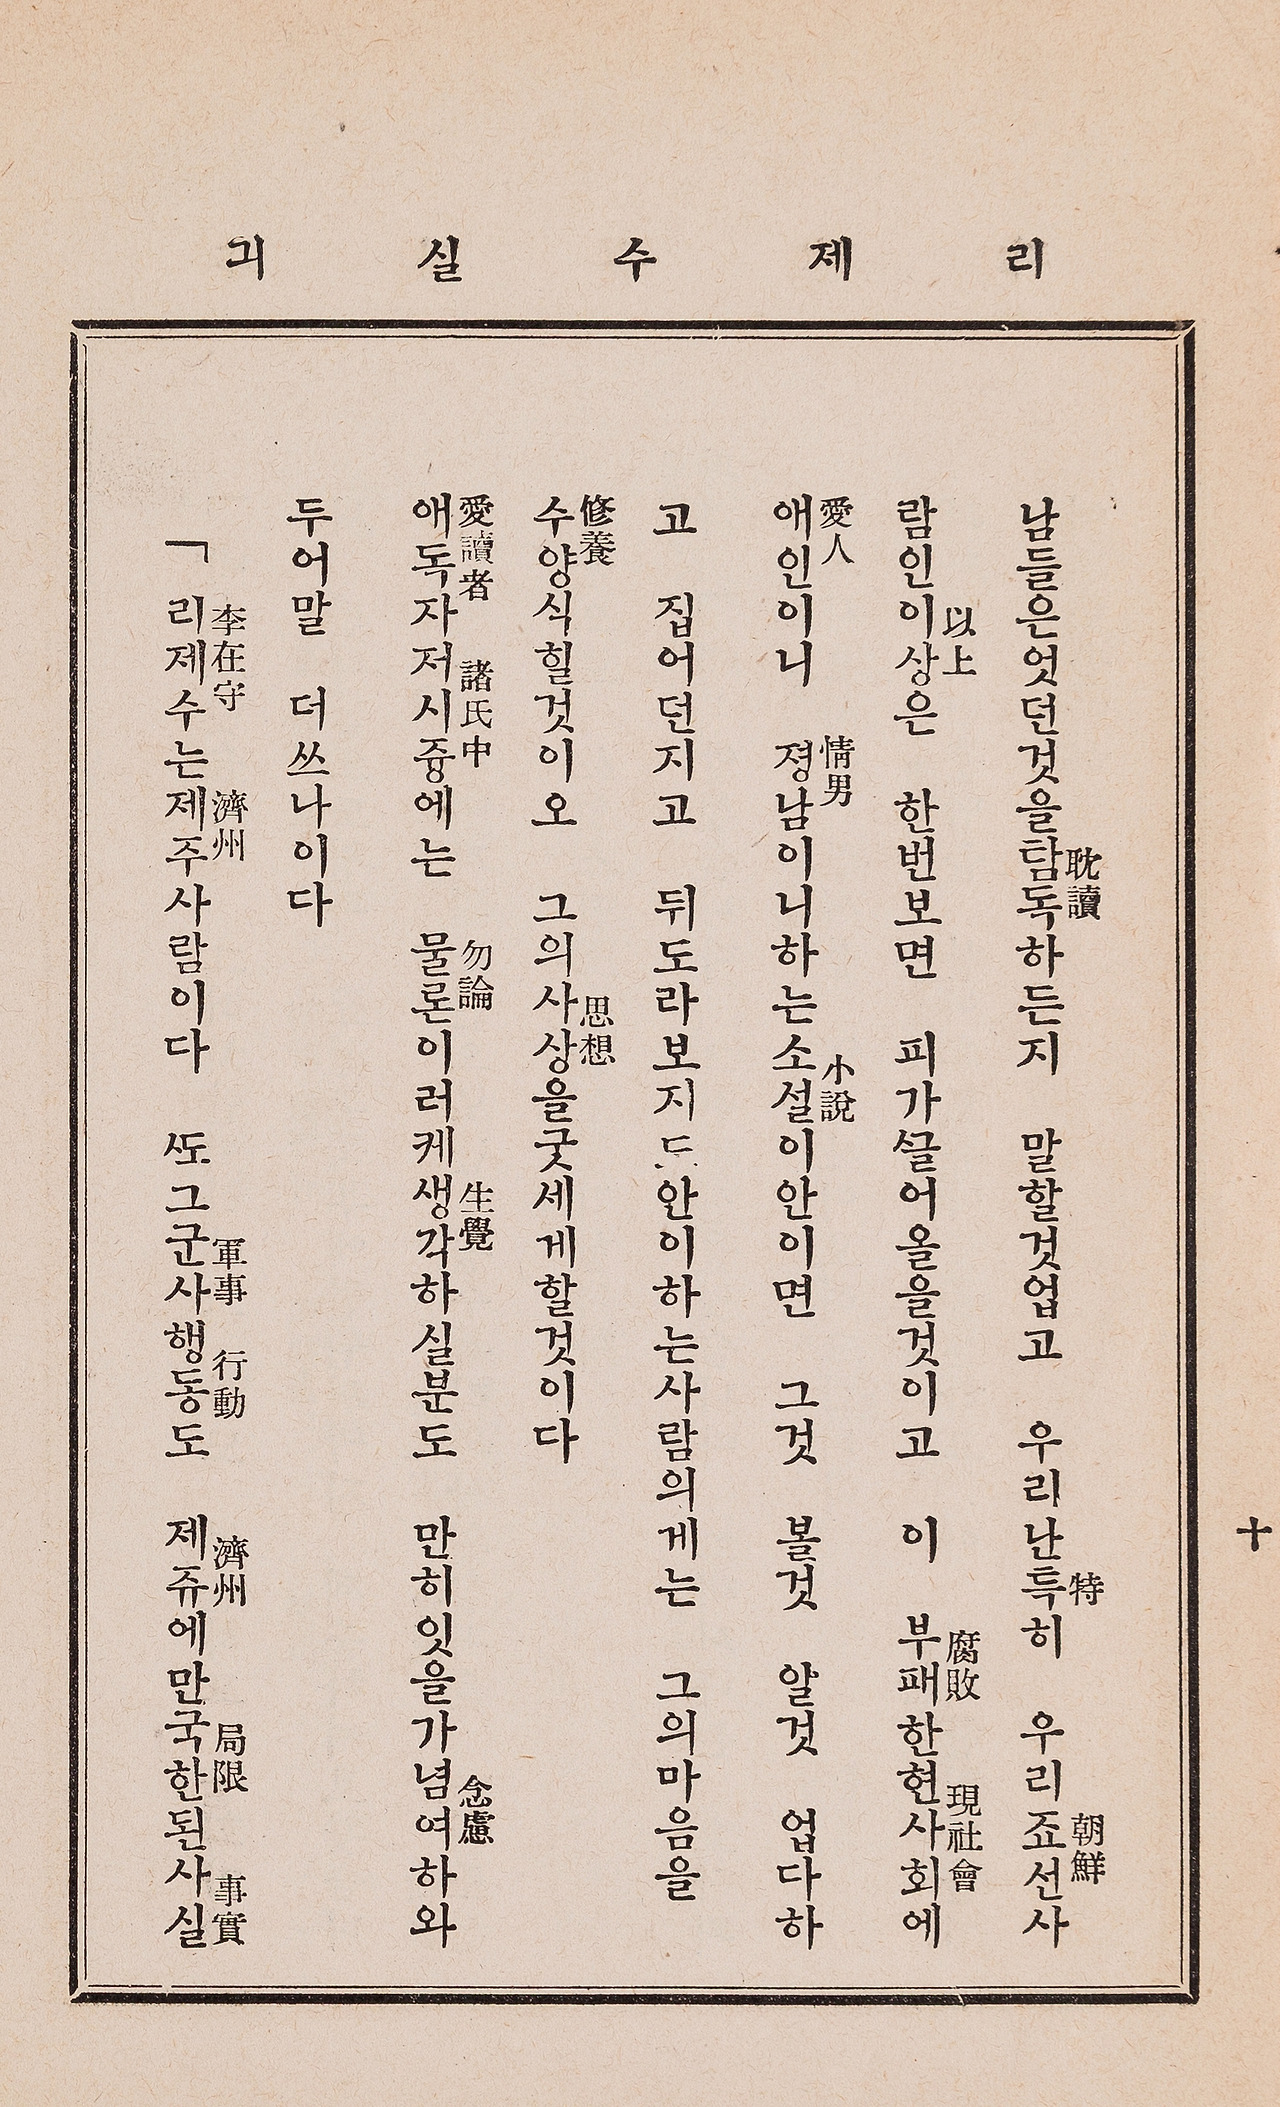 리제수실긔
十
耽讀 特 朝鮮
남들은엇던것을탐독하든지 말할것업고 우리난특히 우리죠선사
以上 腐敗 現社會
람인이상은 한번보면 피가ᄭᅳᆯ어올을것이고 이 부패한현사회에
愛人 情男 小說
애인이니 졍남이니하는소설이안이면 그것 볼것 얄것 업다하
고 집어던지고 뒤도라보지 안이하는사람의게는 그의마음을
修養 思想
수양식힐것이오 그의사상을굿세게할것이다
愛讀者 諸氏中 勿論 生覺 念慮
애독자저시즁에는 물론이러케생각하실분도 만히잇을가념여하와
두어말 더쓰나이다
李在守 濟州 軍事 行動 濟州 局限 事實
「리제수는제주사람이다 ᄯᅩ그군사행동도 제쥬에만국한된사실